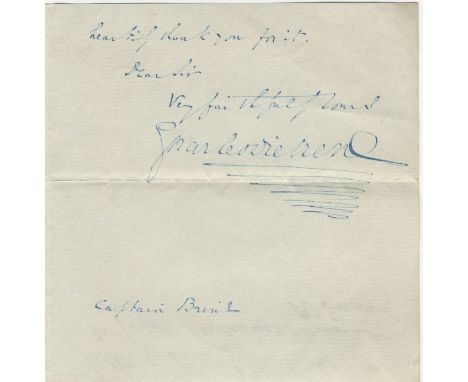 heartily thank you for it.
Dear Sir
Very faithfully Yours
Charles Dickens
Captain